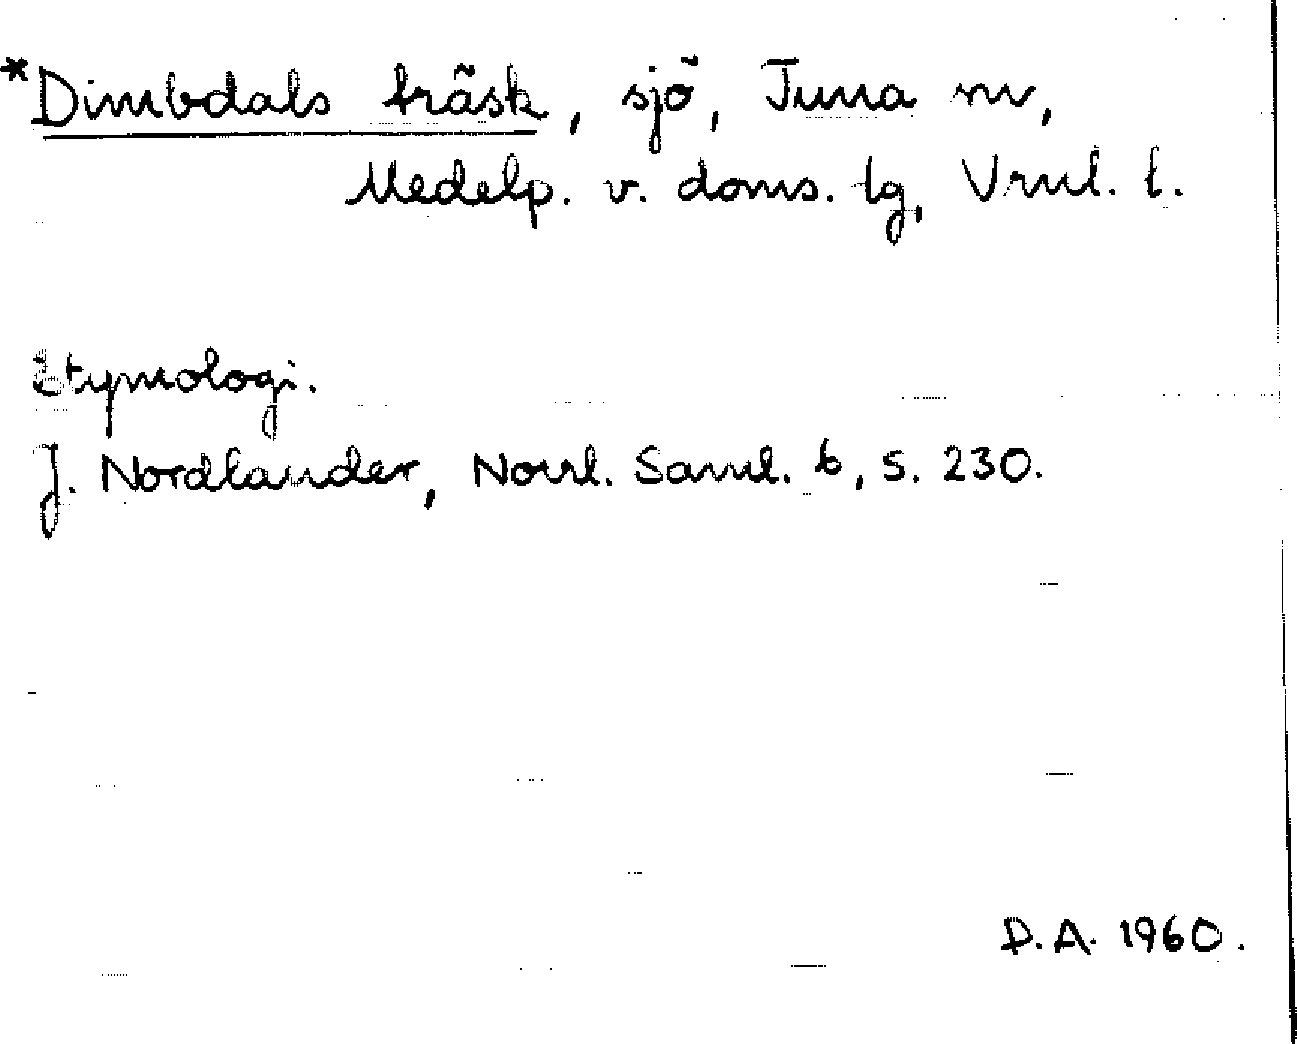 *Dimbdals träsk, sjö, Tuna sn,
Medelp. v. doms. tg, Vrnl. l.
Etymologi.
J. Nordlander, Norrl. Saml. 6, s. 230.
D.A. 1960.